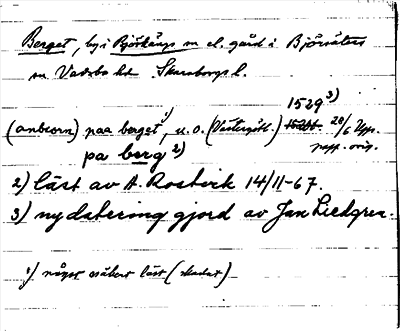 Berget, by i Björkängs m el. gård i Björsäters
m. Vadsbo hd Skaraborgs l.
1529 3)
(anbiorn) paa berget 1), u.o. (Västergötl.) 28/6 Upps.
pa berg 2) papp. orig.
2) läst av A. Rostvik 14/11-67.
3) nydatering gjord av Jan Liedgren.
1) något osäkert läst (skadat)